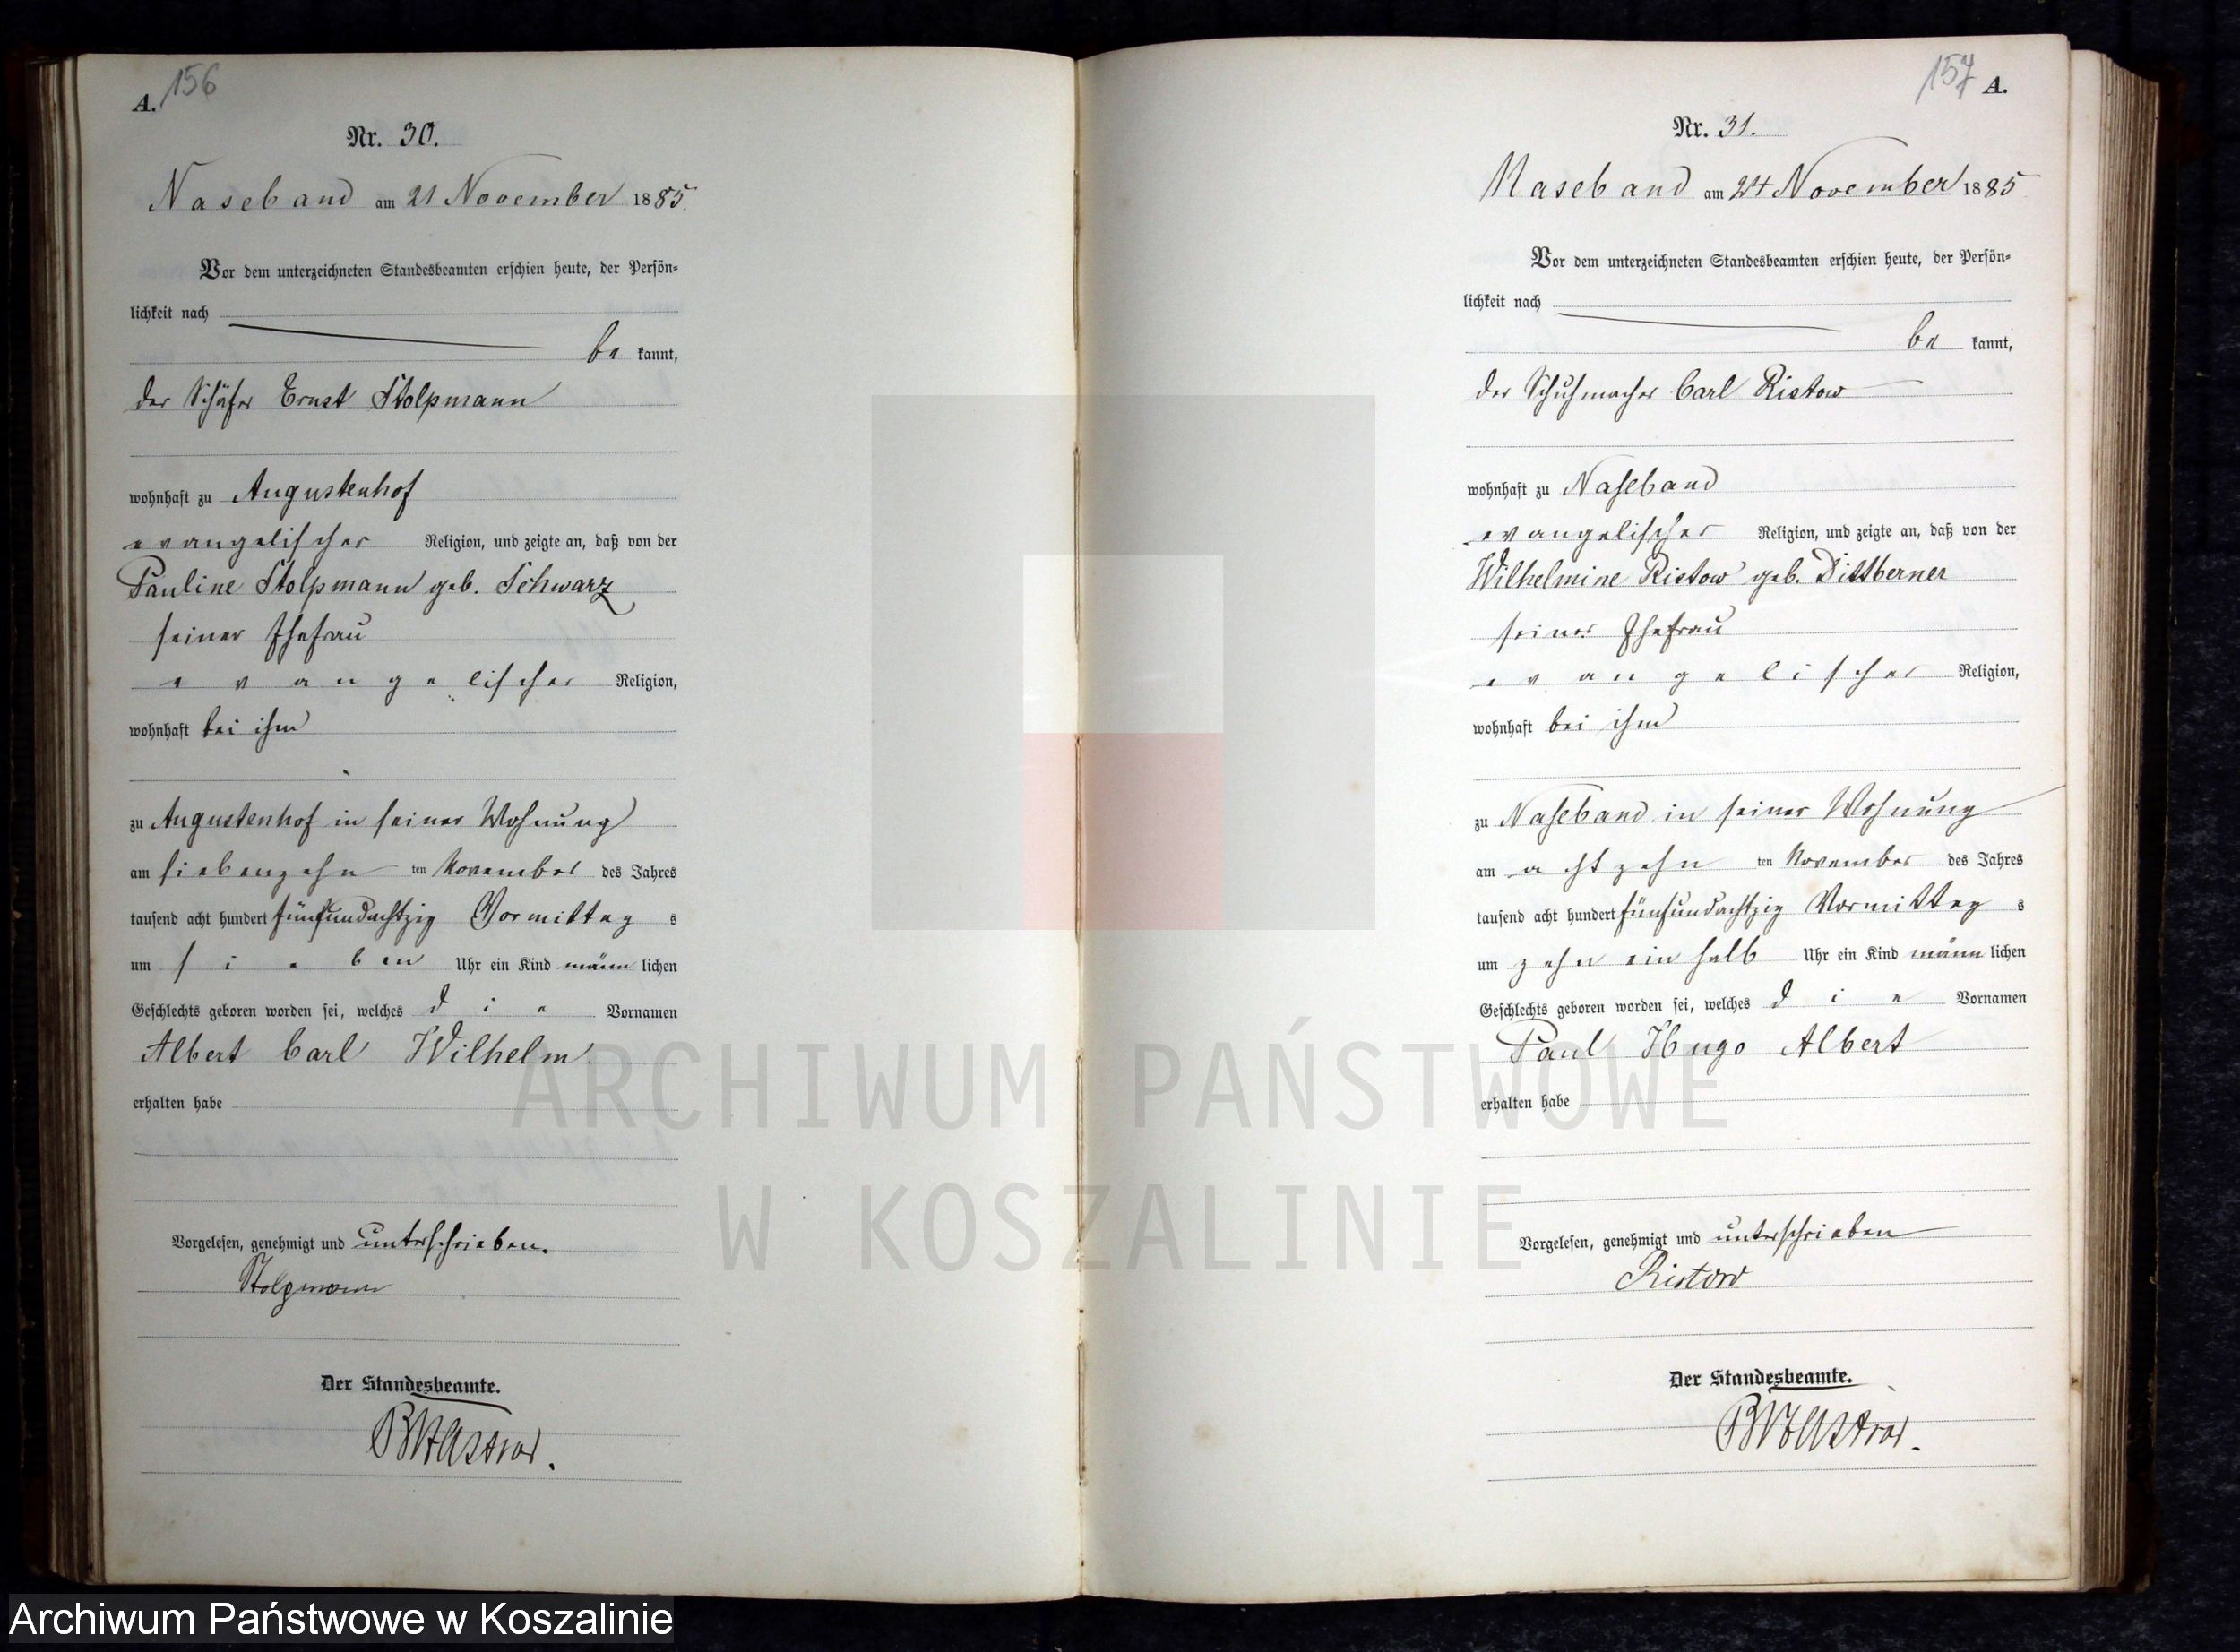 156
A.
Nr. 30.
Naseband am 21 November 1885.
Vor dem unterzeichneten Standesbeamten erschien heute, der Persön=
lichkeit nach
be kannt,
der Schäfer Ernst Stolpmann
wohnhaft zu Augustenhof
evangelischer Religion, und zeigte an, daß von der
Pauline Stolpmann geb. Schwarz
seiner Ehefrau
evangelischer Religion,
wohnhaft bei ihm
zu Augustenhof in seiner Wohnung
am siebenzehn ten November des Jahres
tausend acht hundert fünfundachtzig Vormittag s
um sieben Uhr ein Kind männ lichen
Geschlechts geboren worden sei, welches die Vornamen
Albert Carl Wilhelm
erhalten habe
Vorgelesen, genehmigt und unterschrieben.
Stolpmann
Der Standesbeamte.
157
A.
Nr. 31.
Naseband am 24 November 1885
Vor dem unterzeichneten Standesbeamten erschien heute, der Persön=
lichkeit nach
be kannt,
der Schuhmacher Carl Ristow
wohnhaft zu Naseband
evangelischer Religion, und zeigte an, daß von der
Wilhelmine Ristow geb. Dittberner
seiner Ehefrau
evangelischer Religion,
wohnhaft bei ihm
zu Naseband in seiner Wohnung
am achtzehn ten November des Jahres
tausend acht hundert fünfundachtzig Vormittag s
um zehn ein halb Uhr ein Kind männ lichen
Geschlechts geboren worden sei, welches die Vornamen
Paul Hugo Albert
erhalten habe
Vorgelesen, genehmigt und unterschrieben
Ristow
Der Standesbeamte.
ARCHIWUM PAŃSTWOWE
W KOSZALINIE
Archiwum Państwowe w Koszalinie